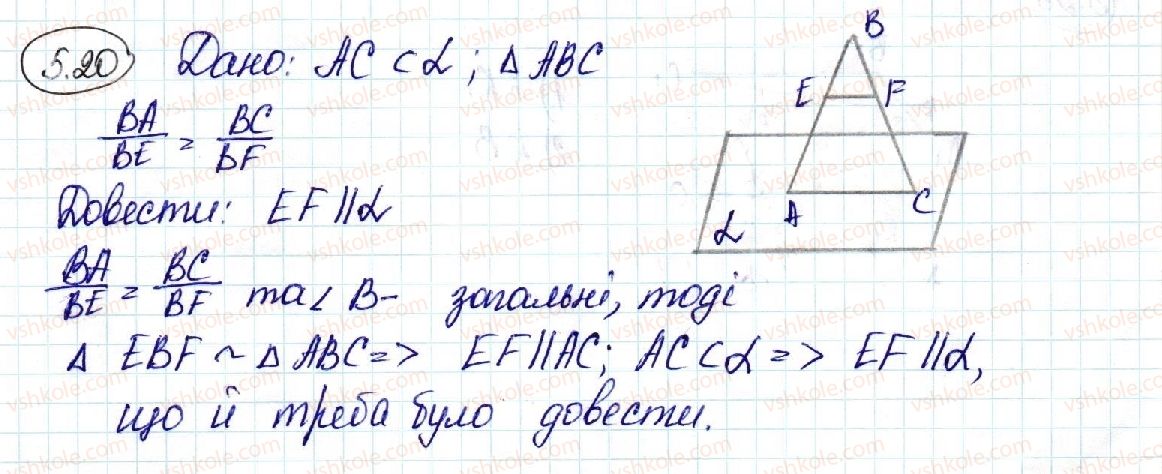 5.20 Дано: AC ⊂ α; △ ABC
BA/BE = BC/BF
Довести: EF || α
BA/BE = BC/BF та ∠ B - загальні, тоді
△ EBF ~ △ ABC => EF || AC; AC ⊂ α => EF || α,
що й треба було довести.
B
E F
A C
α
vshkole.com